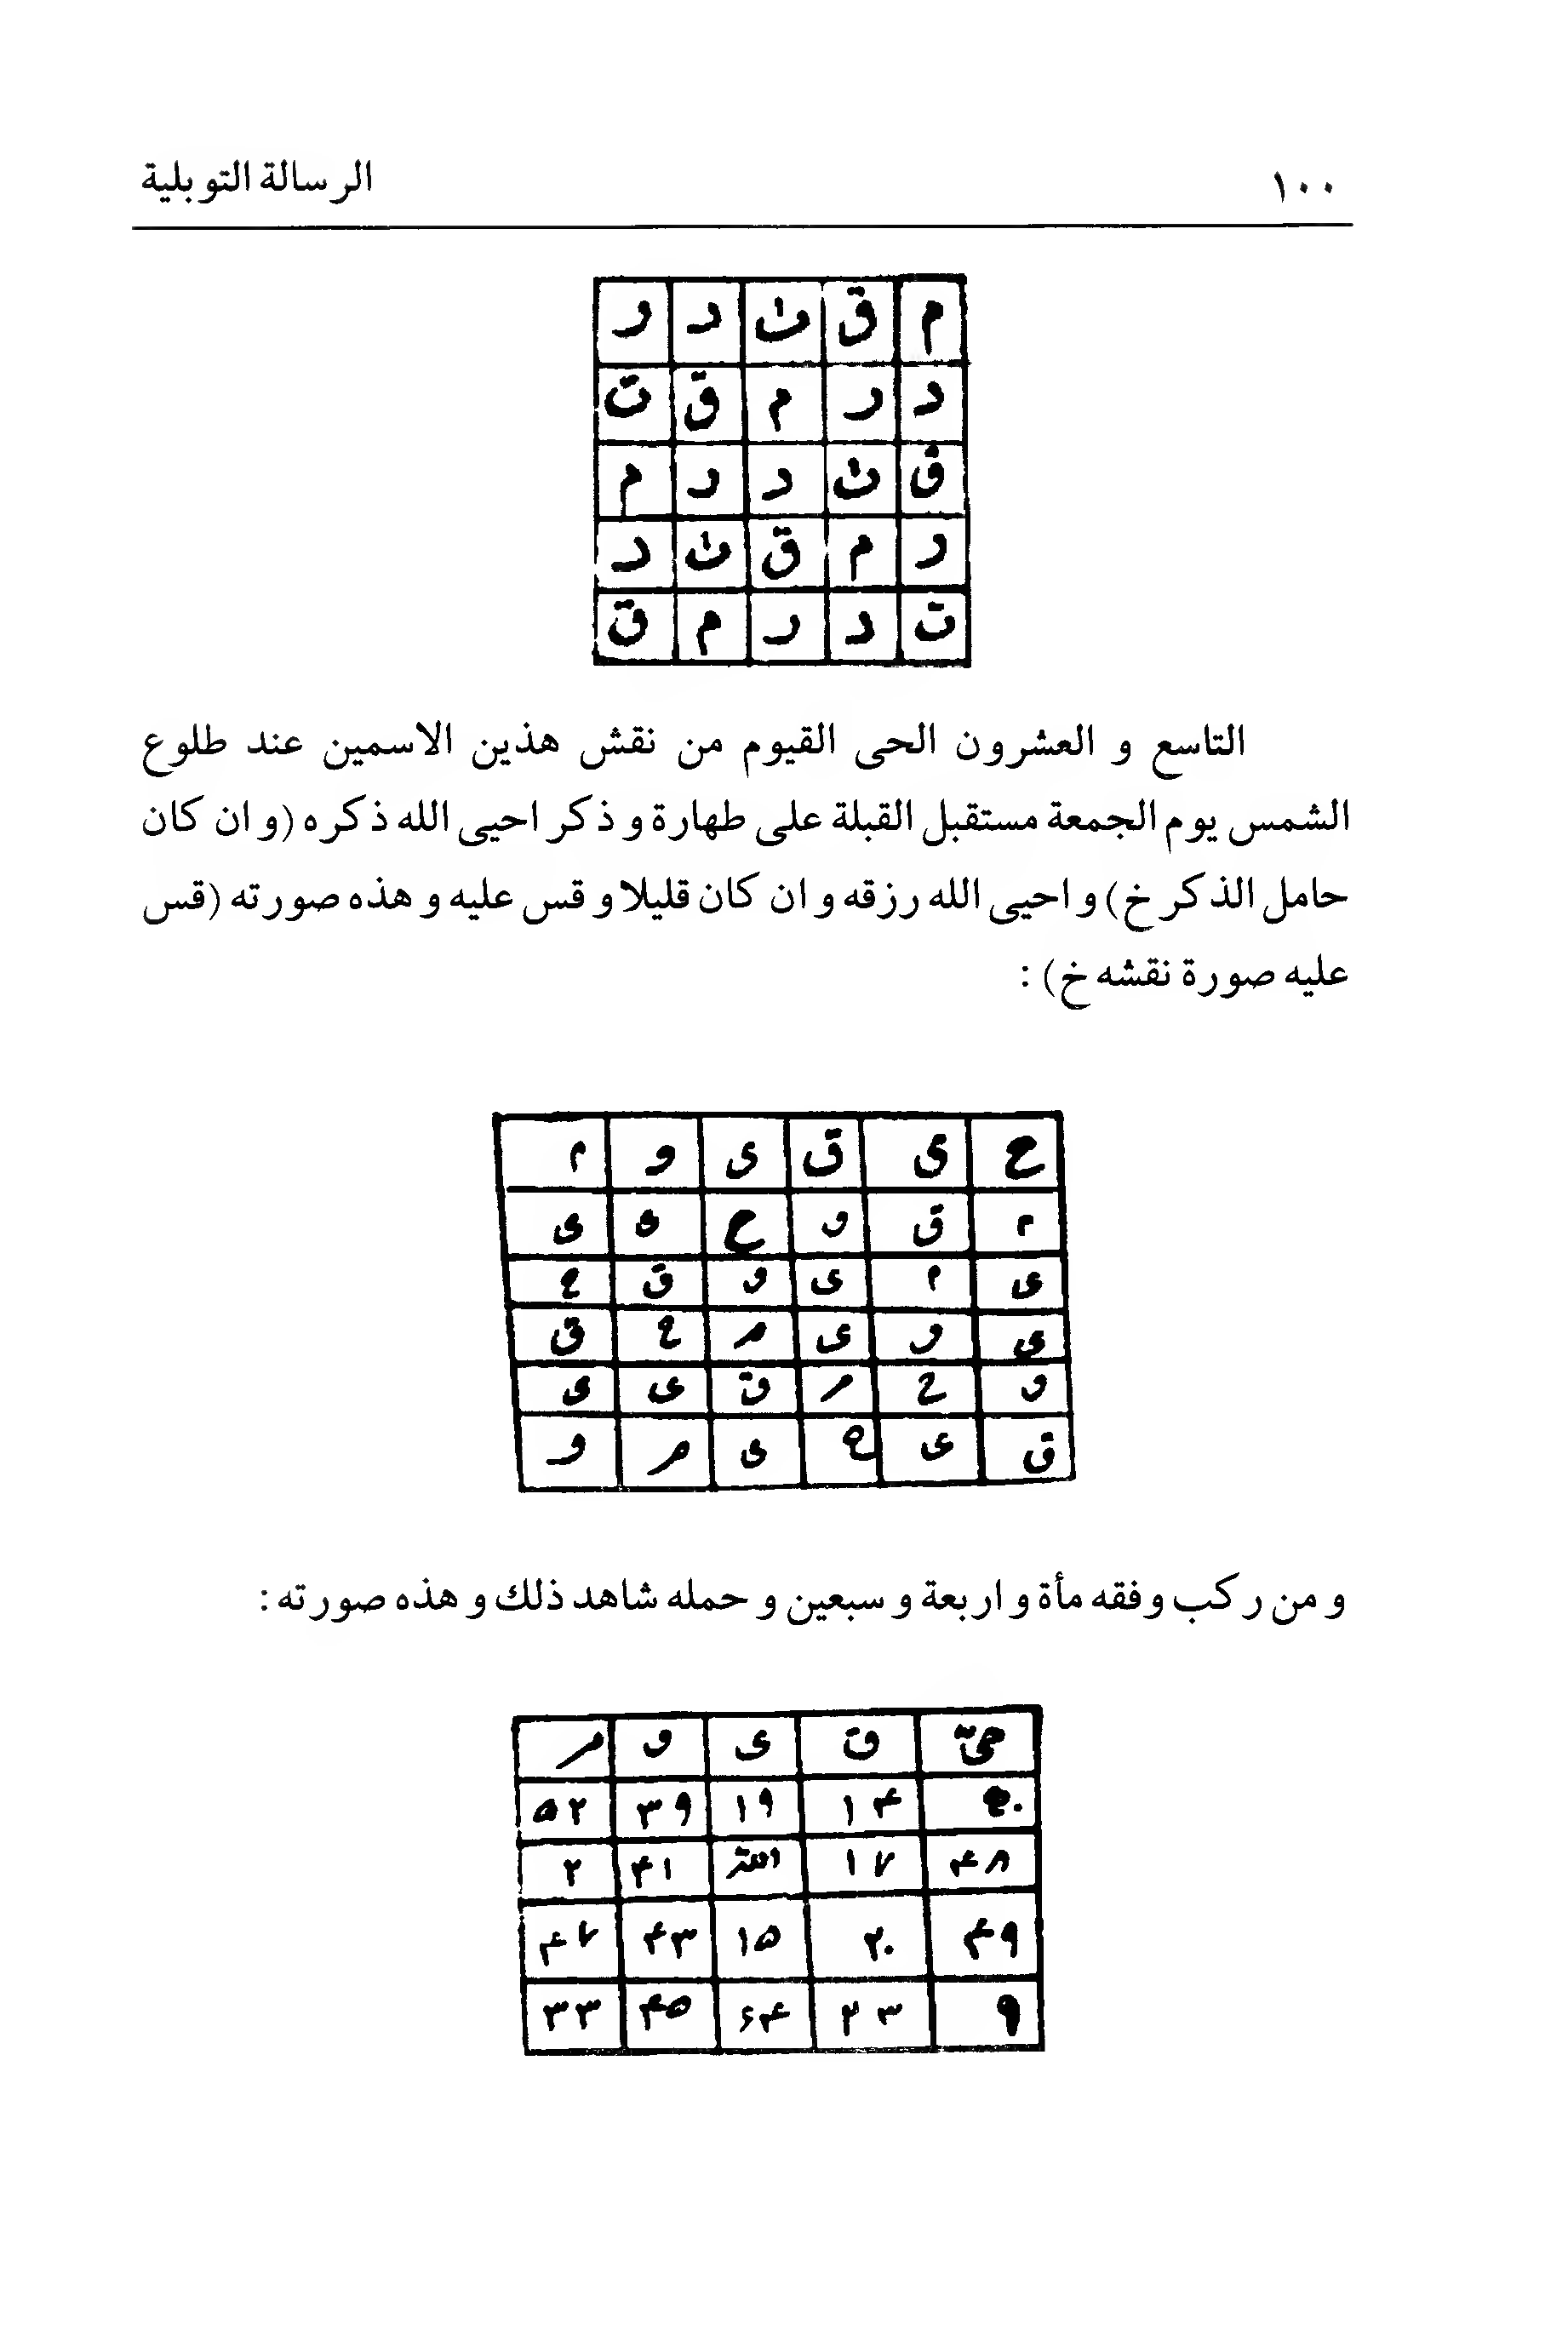 ١٠٠ الرسالة التوبلية
م ق ت د ر
د ر م ق ت
ق ت د ر م
ر م ق ت د
ت د ر م ق
التاسع و العشرون الحى القيوم من نقش هذين الاسمين عند طلوع
الشمس يوم الجمعة مستقبل القبلة على طهارة و ذكر احيى الله ذكره (و ان كان
حامل الذكر خ) و احيى الله رزقه و ان كان قليلا و قس عليه و هذه صورته (قس
عليه صورة نقشه خ) :
ح ى ق ى و م
م ق و ح ى ى
ى م ى و ق ح
ى و ى م ح ق
و ح م ق ى ى
ق ى ح ى م و
و من ركب وفقه مأة و اربعة و سبعين و حمله شاهد ذلك و هذه صورته :
حىّ ق ى و م
۱۴ ۱۹ ۳۹ ۵۲
۴۸ ۱۷ الله ۴۱ ۲
۴۹ ۲۰ ۱۵ ۴۳ ۴۷
۹ ۲۳ ۶۴ ۴۵ ۳۳